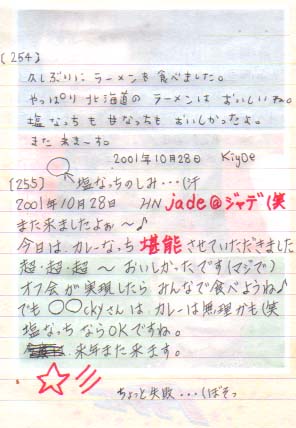 [254]
久しぶりに ラーメンを 食べました。
やっぱり 北海道の ラーメンは おいしいね。
塩なっちも 甘なっちも おいしかったよ。
また 来ま～す。
2001年10月28日 Kiyoe
[255] ↖塩なっちのしみ…(汗
2001年10月28日 HN jade@ジャデ(笑
また来ましたよぉ～♪
今日は、カレーなっち 堪能 させていただきました
超・超・超～ おいしかったです(マジで)
オフ会が実現したら みんなで食べようね♪
でも ○○ckyさんは、カレーは無理かも(笑
塩なっち ならOKですね。
来年また来ます。
ちょっと失敗・・・(ぼそっ